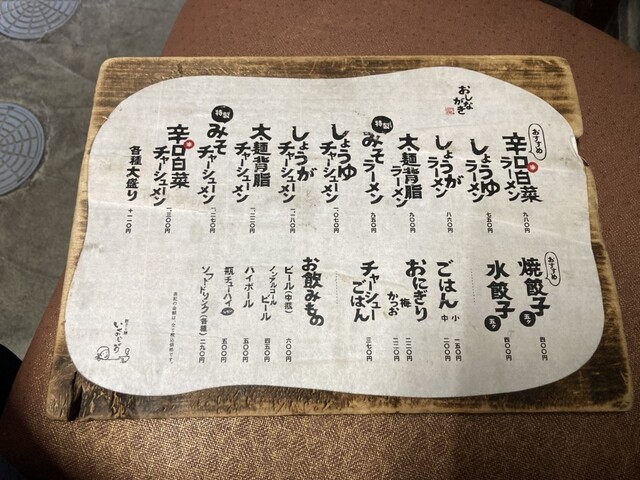 おしながき
おすすめ
辛口白菜ラーメン 九八〇円
しょうゆラーメン 七五〇円
しょうがラーメン 八六〇円
太麺背脂ラーメン 九〇〇円
特製
みそラーメン 九五〇円
しょうゆチャーシューメン 一、〇七〇円
しょうがチャーシューメン 一、一八〇円
太麺背脂チャーシューメン 一、二二〇円
特製
みそチャーシューメン 一、二七〇円
辛口白菜チャーシューメン 一、三〇〇円
各種大盛り +一二〇円
おすすめ
焼餃子 五ヶ 四〇〇円
水餃子 五ヶ 四〇〇円
ごはん 小 一五〇円
中 二〇〇円
おにぎり 梅 二二〇円
かつお 二二〇円
チャーシューごはん 三七〇円
お飲みもの
ビール(中瓶) 六〇〇円
ノンアルコールビール 四五〇円
ハイボール 五〇〇円
瓶チューハイ 五〇〇円
ソフトドリンク(各種) 二九〇円
表記の金額は、全て税込価格です。